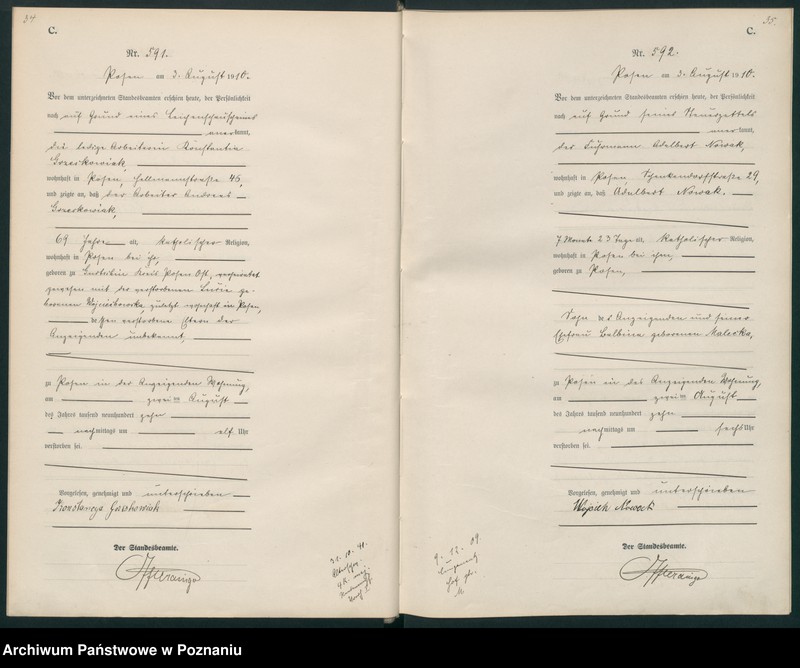 34
C.
Nr. 591.
Posen am 3. August 1910.
Vor dem unterzeichneten Standesbeamten erschien heute, der Persönlichkeit
nach auf Grund eines Leichenschauscheins
anerkannt,
die ledige Arbeiterin Konstantia
wohnhaft in Posen, Hellmannstraße 45,
und zeigte an, daß der Arbeiter Andreas
69 Jahre alt, katholischer Religion,
wohnhaft in Posen bei ihr,
geboren zu Kreis Posen Ost, verheiratet
gewesen mit der verstorbenen Lucie ge-
borenen zuletzt wohnhaft in Posen,
dessen verstorbene Eltern der
Anzeigenden unbekannt,
zu Posen in der Anzeigenden Wohnung,
am zweiten August
des Jahres tausend neunhundert zehn
nachmittags um elf Uhr
verstorben sei.
Vorgelesen, genehmigt und unterschrieben
Konstancya
Der Standesbeamte.
31. 10. 41.
35
C.
Nr. 592.
Posen am 3. August 1910.
Vor dem unterzeichneten Standesbeamten erschien heute, der Persönlichkeit
nach auf Grund seines Steuerzettels
anerkannt,
der Fuhrmann Adelbert Nowak,
wohnhaft in Posen Schenkendorfstraße 29,
und zeigte an, daß Adelbert Nowak.
7 Monate 23 Tage alt, katholischer Religion,
wohnhaft in Posen bei ihm,
geboren zu Posen,
Sohn des Anzeigenden und seiner
Ehefrau Balbina geborenen Malecka,
zu Posen in des Anzeigenden Wohnung,
am zweiten August
des Jahres tausend neunhundert zehn
nachmittags um sechs Uhr
verstorben sei.
Vorgelesen, genehmigt und unterschrieben
Wojciech Nowak
Der Standesbeamte.
9. 12. 09.
Archiwum Państwowe w Poznaniu